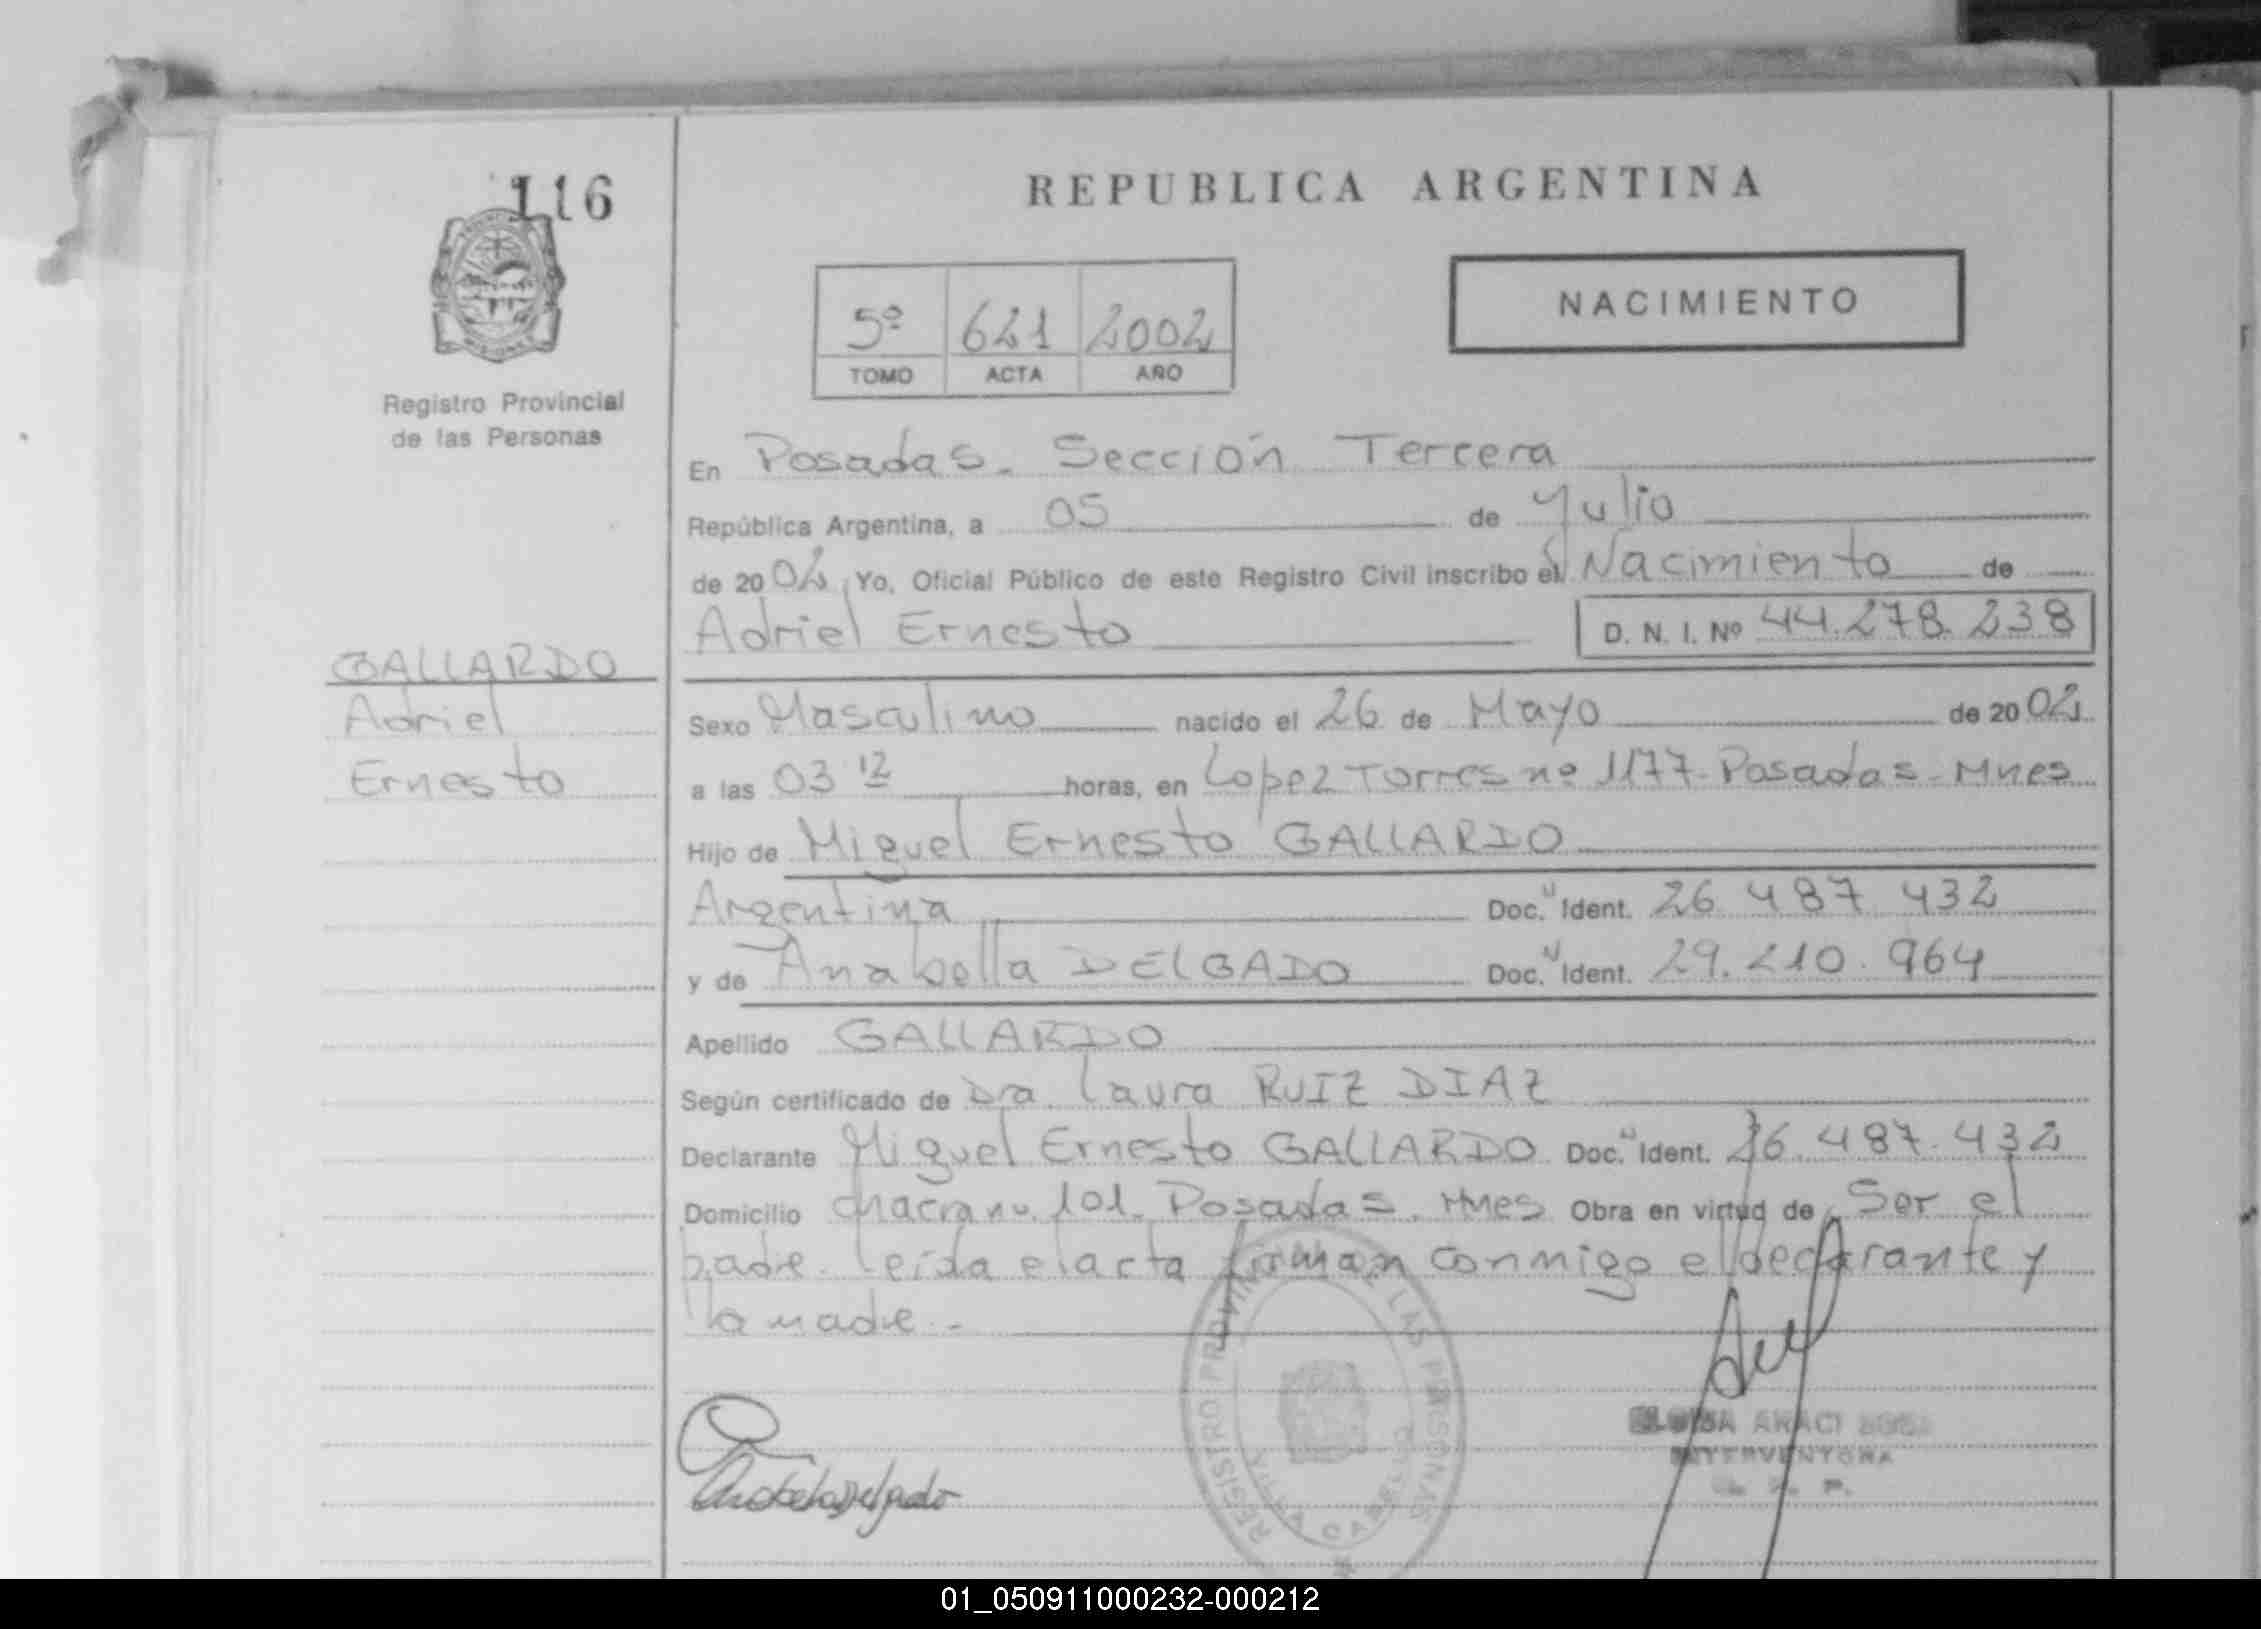 116
REPUBLICA ARGENTINA
NACIMIENTO
5º 621 2002
TOMO ACTA AÑO
Registro Provincial
de las Personas
En Posadas. Sección Tercera
República Argentina, a 05 de Julio
de 2002, Yo, Oficial Público de este Registro Civil inscribo el Nacimiento de
Adriel Ernesto D. N. I. Nº 44.278.238
GALLARDO
Adriel
Ernesto
Sexo Masculino nacido el 26 de Mayo de 2002
a las 03 12 horas, en Lopez Torres nº 1177. Posadas - Mnes
Hijo de Miguel Ernesto GALLARDO
Argentina Doc. Ident. 26 487 432
y de Anabella DELGADO Doc. Ident. 29.210.964
Apellido GALLARDO
Según certificado de Dra. Laura RUIZ DIAZ
Declarante Miguel Ernesto GALLARDO Doc. Ident. 26.487.432
Domicilio chacra nº 101. Posadas. Mnes Obra en virtud de Ser el
padre. Leida el acta firman conmigo el declarante y
la madre.-
REGISTRO PROVINCIAL DE LAS PERSONAS
INTERVENTORA
Anabela Delgado
01_050911000232-000212